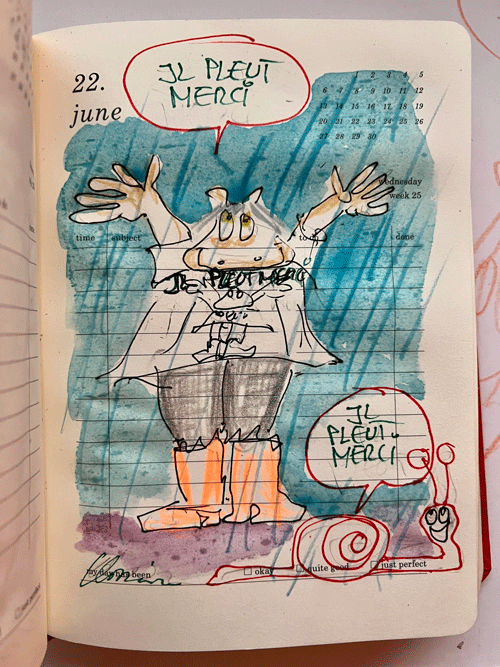 IL PLEUT
MERCI
22.
june
2 3 4 5
6 7 8 9 10 11 12
13 14 15 16 17 18 19
20 21 22 23 24 25 26
27 28 29 30
wednesday
week 25
time subject to do done
IL PLEUT MERCI
IL
PLEUT
MERCI
my day has been okay quite good just perfect